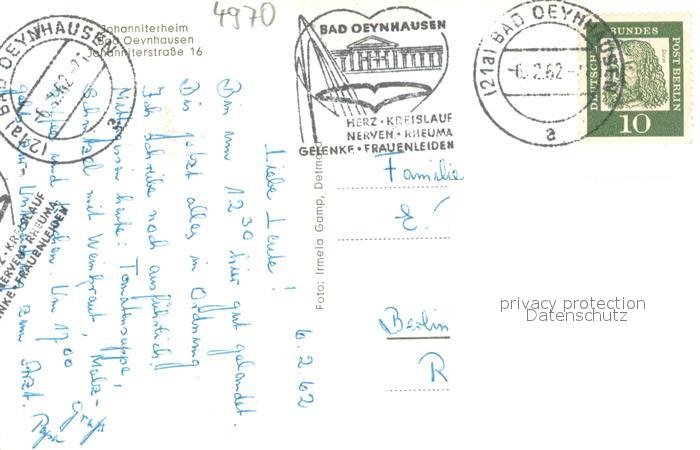 4970
Johanniterheim
Bad Oeynhausen
Johanniterstraße 16
(21a) BAD OEYNHAUSEN
-6.2.62
a
BAD OEYNHAUSEN
HERZ • KREISLAUF
NERVEN • RHEUMA
GELENKE • FRAUENLEIDEN
(21a) BAD OEYNHAUSEN
-6.2.62
a
DEUTSCHE BUNDESPOST BERLIN
Dürer
10
6.2.62
Liebe Leute!
Bin um 12 30 hier gut gelandet.
Bis jetzt alles in Ordnung.
Ich schreibe noch ausführlich!
Mittagessen heute: Tomatensuppe,
Schnitzel mit Weinkraut, Malz-
und Um 17 00
zum Arzt.
Gruß
Papa
Foto: Irmela Gamp, Detmold
Familie
Berlin
R
KREISLAUF
NERVEN • RHEUMA
GELENKE • FRAUENLEIDEN
privacy protection
Datenschutz